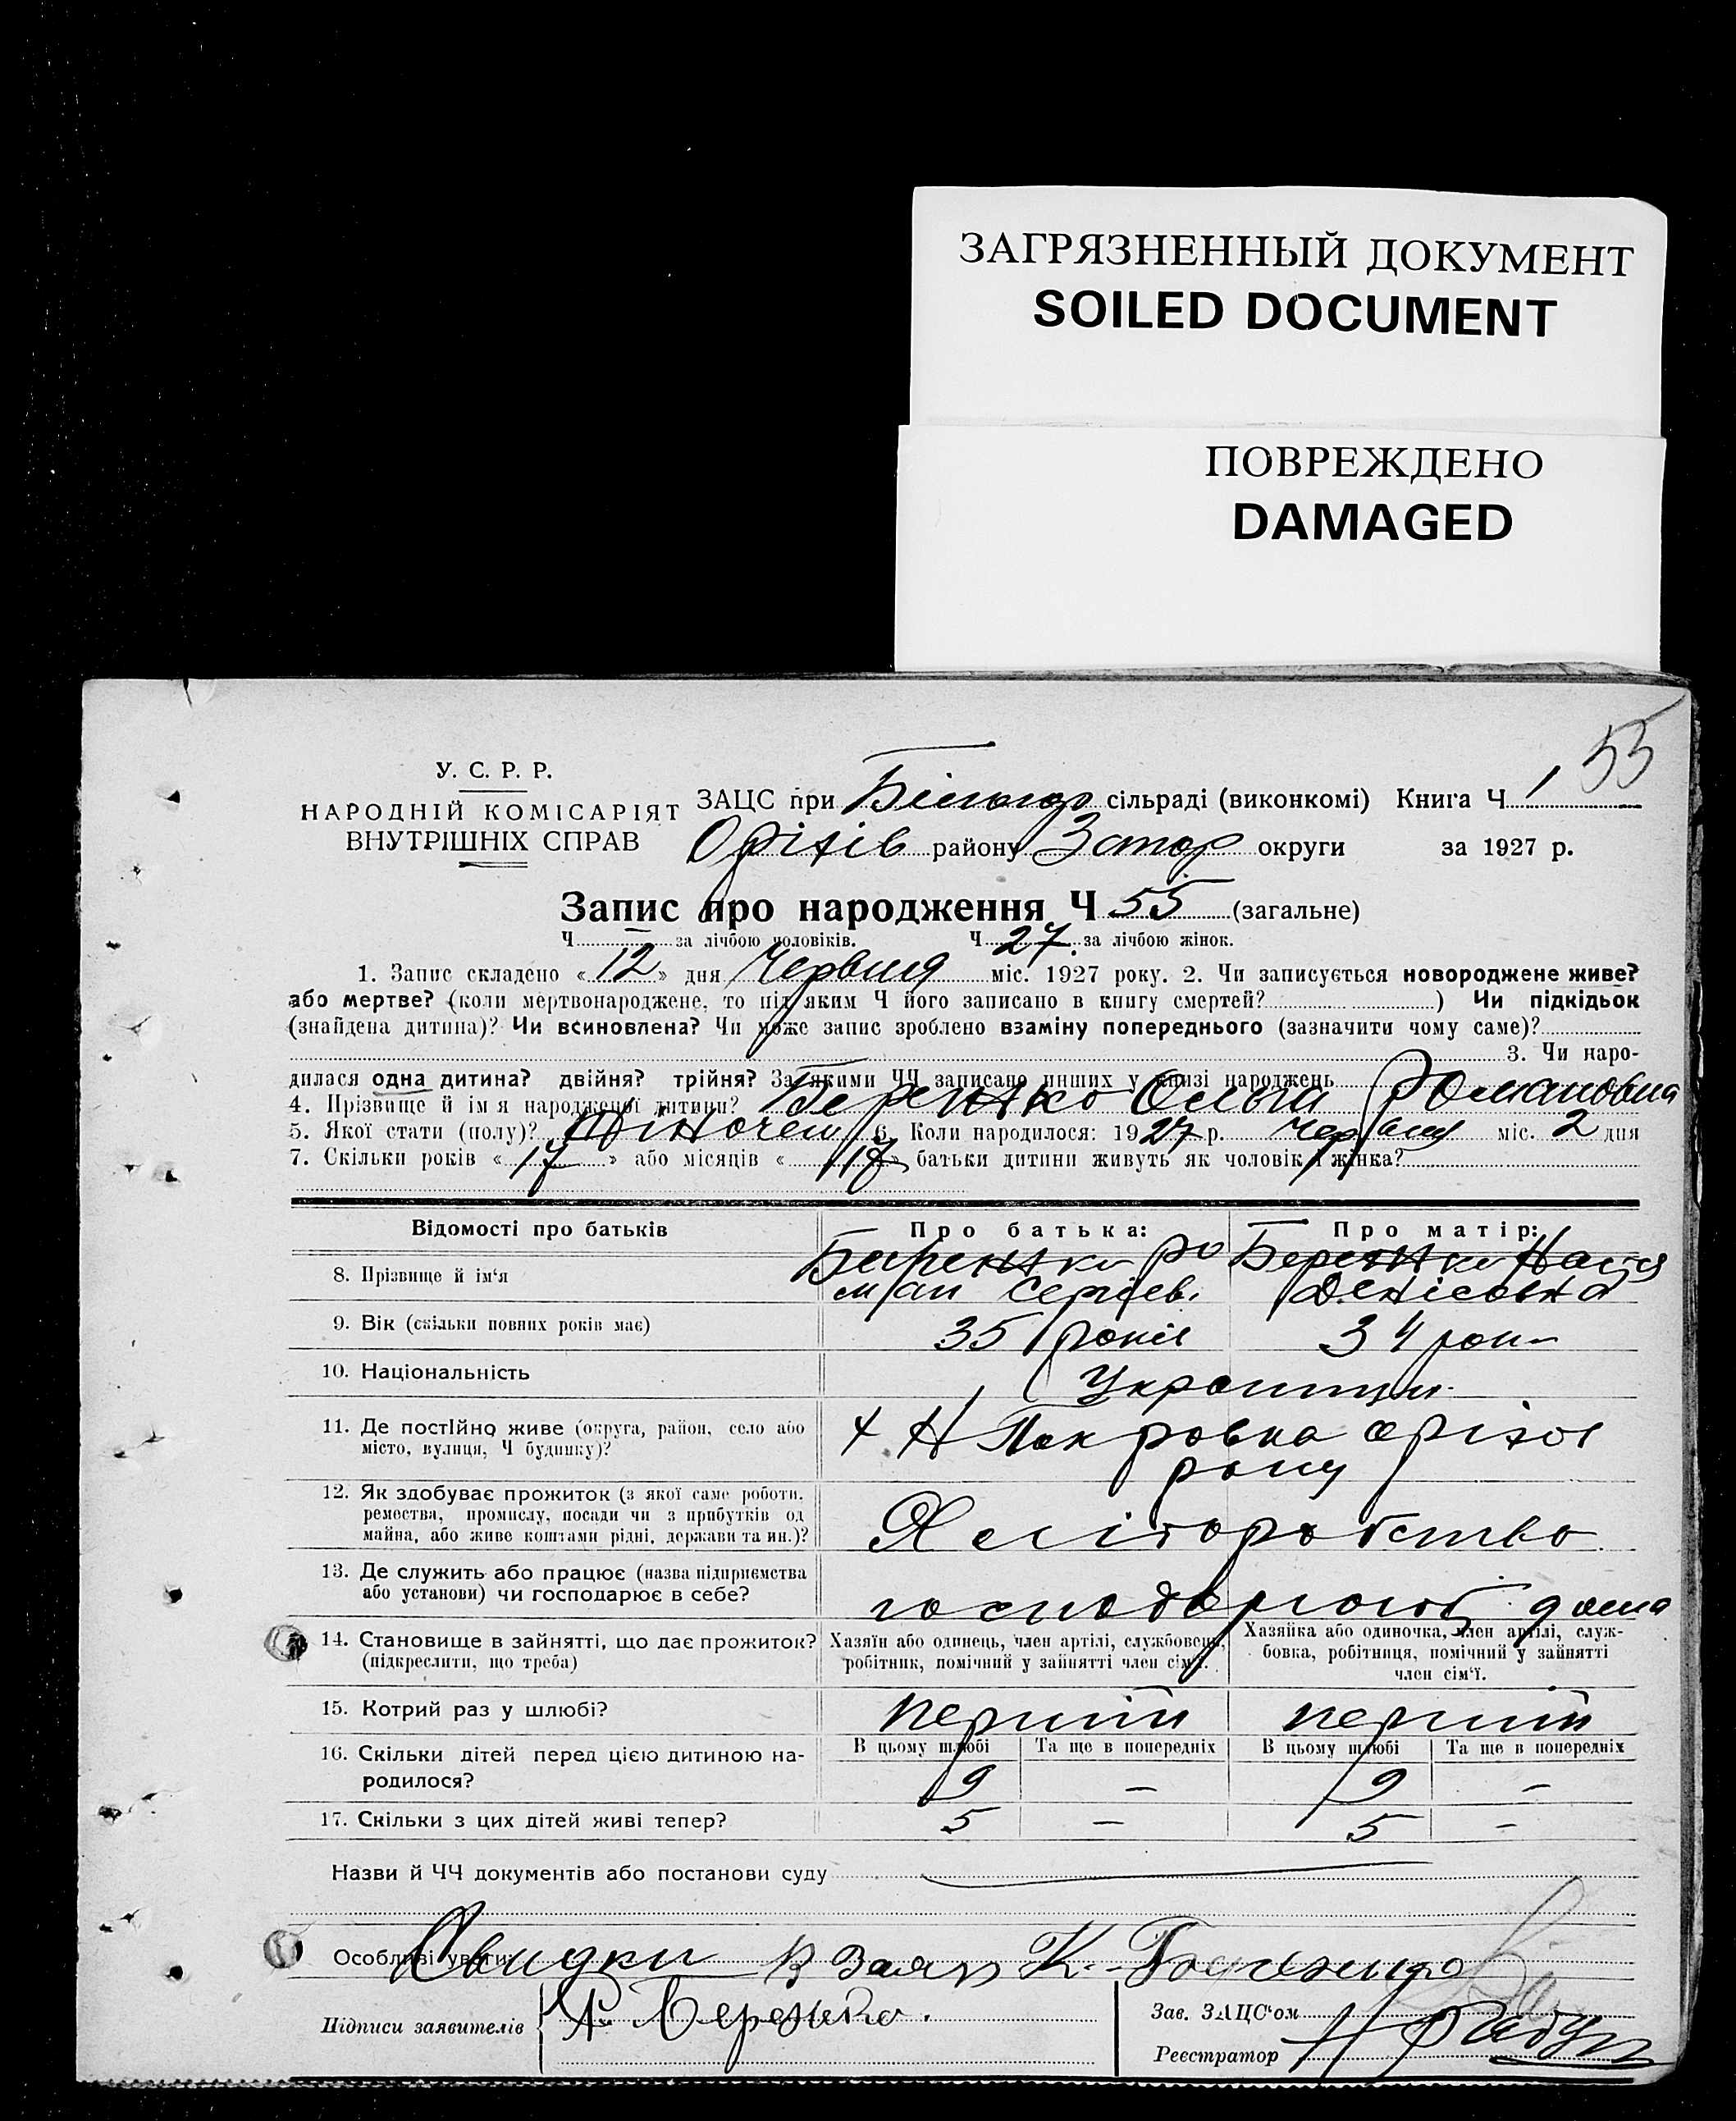 ЗАГРЯЗНЕННЫЙ ДОКУМЕНТ
SOILED DOCUMENT
ПОВРЕЖДЕНО
DAMAGED
55
У. С. Р. Р.
НАРОДНІЙ КОМІСАРІЯТ
ВНУТРІШНІХ СПРАВ
ЗАЦС при сільраді (виконкомі) Книга Ч 1
Оріхів району Запор округи за 1927 р.
Запис про народження Ч 55 (загальне)
Ч за лічбою чоловіків. Ч 27. за лічбою жінок.
1. Запис складено « 12 » дня Червня міс. 1927 року. 2. Чи записується новороджене живе?
або мертве? (коли мертвонароджене, то під яким Ч його записано в книгу смертей? ) Чи підкідьок
(знайдена дитина)? Чи всиновлена? Чи може запис зроблено взаміну попереднього (зазначити чому саме)?
3. Чи наро-
дилася одна дитина? двійня? трійня? За якими ЧЧ записано инших у книзі народжень
4. Прізвище й ім'я народженої дитини? Бережко Ольга Романовна
5. Якої стати (полу)? 6. Коли народилося: 1927 р. червня міс. 2 дня
7. Скільки років « 17 » або місяців « » батьки дитини живуть як чоловік і жінка?
Відомості про батьків
Про батька:
Про матір:
8. Прізвище й ім'я
Бережко Ро
ман Сергіев.
Бережко
Денісовна
9. Вік (скільки повних років має)
35 років
34 роки
10. Національність
Українци
11. Де постійно живе (округа, район, село або
місто, вулиця, Ч будинку)?
Покровка Оріхов
рону
12. Як здобуває прожиток (з якої саме роботи,
ремества, промислу, посади чи з прибутків од
майна, або живе коштами рідні, держави та ин.)?
Хліборобство
13. Де служить або працює (назва підприємства
або установи) чи господарює в себе?
господарюють дома
14. Становище в зайнятті, що дає прожиток?
(підкреслити, що треба)
Хазяїн або одинець, член артілі, службовець,
робітник, помічний у зайнятті член сім'ї.
Хазяйка або одиночка, член артілі, служ-
бовка, робітниця, помічний у зайнятті
член сім'ї.
15. Котрий раз у шлюбі?
перший
перший
16. Скільки дітей перед цією дитиною на-
родилося?
В цьому шлюбі Та ще в попередніх В цьому шлюбі Та ще в попередніх
9 — 9 —
17. Скільки з цих дітей живі тепер?
5 — 5 —
Назви й ЧЧ документів або постанови суду
Особливі уваги: К.
Підписи заявителів Бережко.
Зав. ЗАЦС'ом
Реєстратор